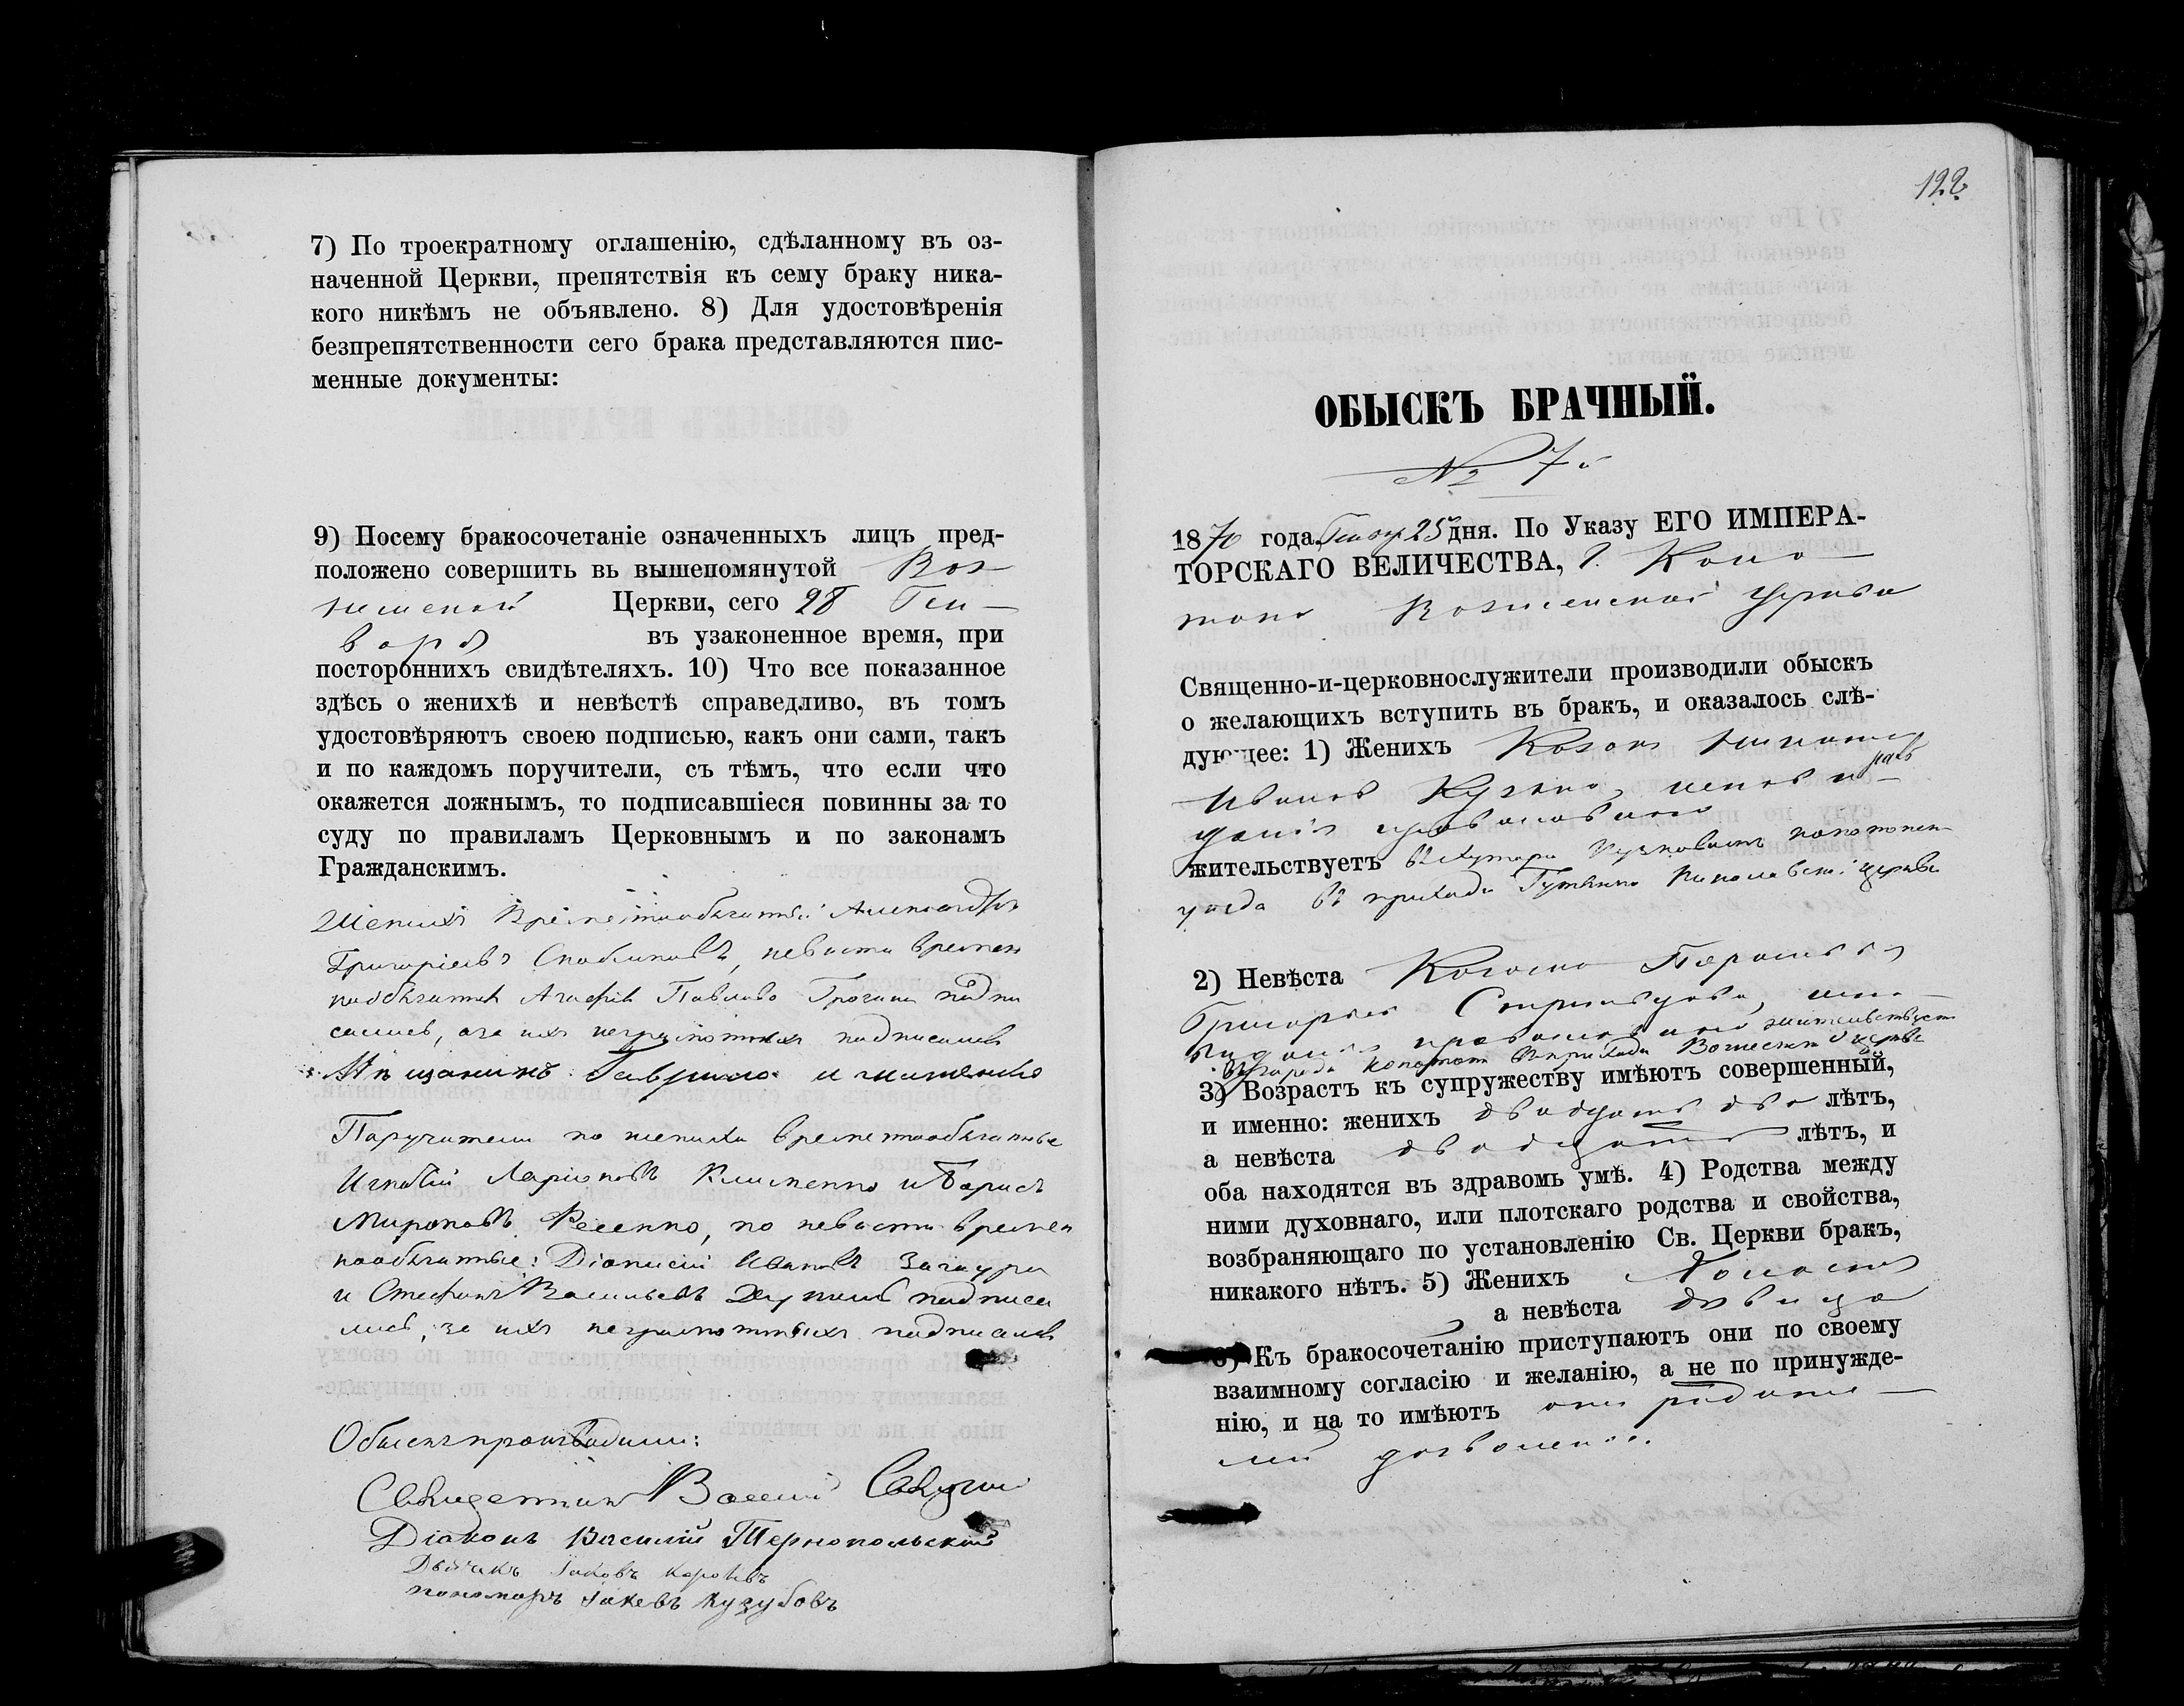 7) По троекратному оглашенію, сдѣланному въ оз-
наченной Церкви, препятствія къ сему браку ника-
кого никѣмъ не объявлено. 8) Для удостовѣренія
безпрепятственности сего брака представляются пис-
менные документы:
9) Посему бракосочетаніе означенныхъ лицъ пред-
положено совершить вь вышепомянутой Воз-
несенской Церкви, сего 28 Ген-
варя въ узаконенное время, при
постороннихъ свидѣтеляхъ. 10) Что все показанное
здѣсь о женихѣ и невѣстѣ справедливо, въ томъ
удостовѣряютъ своею подписью, какъ они сами, такъ
и по каждомъ поручители, съ тѣмъ, что если что
окажется ложнымъ, то подписавшіеся повинны за то
суду по правиламъ Церковнымъ и по законамъ
Гражданскимъ.
Женихъ Временнообязанный Александръ
Григоріевъ невѣста времен
нообязанная Агафія Павлова подпи
сались, а за ихъ неграмотныхъ подписался
Мѣщанинъ Гаврило
Поручители по женихѣ временнообязанные
Игнатій Ларіоновъ Клименко и Борисъ
Мироновъ по невѣсти времен
нообязанные: Діонисій Ивановъ
и Стефанъ Васильевъ подписа
лись, за ихъ неграмотныхъ подписался
Обыскъ производили:
Священникъ Василій
Діаконъ Василій Тернопольскій
Дьячекъ Іаковъ
пономарь Іаковъ Кузубовъ
122
ОБЫСКЪ БРАЧНЫЙ.
№ 7й
1870 года Генвар 25 дня. По Указу ЕГО ИМПЕРА-
ТОРСКАГО ВЕЛИЧЕСТВА, г. Коно-
топа Вознесенской Церкви
Священно-и-церковнослужители производили обыскъ
о желающихъ вступить въ бракъ, и оказалось слѣ-
дующее: 1) Женихъ Козакъ
Ивановъ
данія православнаго
жительствуетъ въ Хуторѣ конотопск
уезда въ приходѣ Николаевской церкви
2) Невѣста Козачка
Григорьева
православнаго жительствуетъ
въ городѣ Конотопѣ въ приходѣ Вознесенской церкви
3) Возрастъ къ супружеству имѣютъ совершенный,
и именно: женихъ двадцать два лѣтъ,
а невѣста двадцать лѣтъ, и
оба находятся въ здравомь умѣ. 4) Родства между
ними духовнаго, или плотскаго родства и свойства,
возбраняющаго по установленію Св. Церкви бракъ,
никакого нѣтъ. 5) Женихъ Холостъ
а невѣста дѣвица
6) Къ бракосочетанію приступаютъ они по своему
взаимному согласію и желанію, а не по принужде-
нію, и на то имѣютъ они родите-
лей дозволеніе.